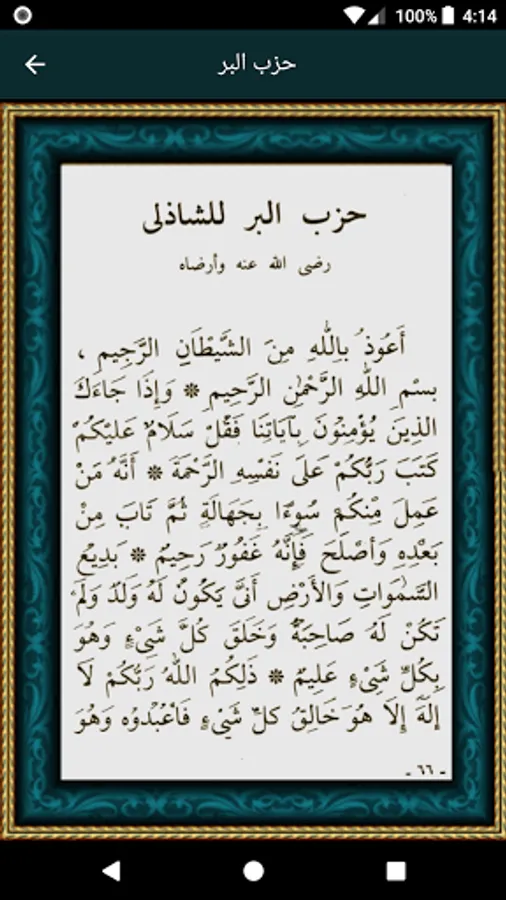 100% 4:14
حزب البر
حزب البر للشاذلى
رضى الله عنه وأرضاه
أَعُوذُ بِاللَّهِ مِنَ الشَّيْطَانِ الرَّجِيمِ ،
بِسْمِ اللَّهِ الرَّحْمَٰنِ الرَّحِيمِ * وَإِذَا جَاءَكَ
الَّذِينَ يُؤْمِنُونَ بِآيَاتِنَا فَقُلْ سَلَامٌ عَلَيْكُمْ
كَتَبَ رَبُّكُمْ عَلَى نَفْسِهِ الرَّحْمَةَ * أَنَّهُ مَنْ
عَمِلَ مِنْكُمْ سُوءًا بِجَهَالَةٍ ثُمَّ تَابَ مِنْ
بَعْدِهِ وَأَصْلَحَ فَإِنَّهُ غَفُورٌ رَحِيمٌ * بَدِيعُ
السَّمَٰوَاتِ وَالْأَرْضِ أَنَّى يَكُونُ لَهُ وَلَدٌ وَلَمْ
تَكُنْ لَهُ صَاحِبَةٌ وَخَلَقَ كُلَّ شَيْءٍ وَهُوَ
بِكُلِّ شَيْءٍ عَلِيمٌ * ذَلِكُمُ اللَّهُ رَبُّكُمْ لَا
إِلَهَ إِلَّا هُوَ خَالِقُ كُلِّ شَيْءٍ فَاعْبُدُوهُ وَهُوَ
- ٦٦ -